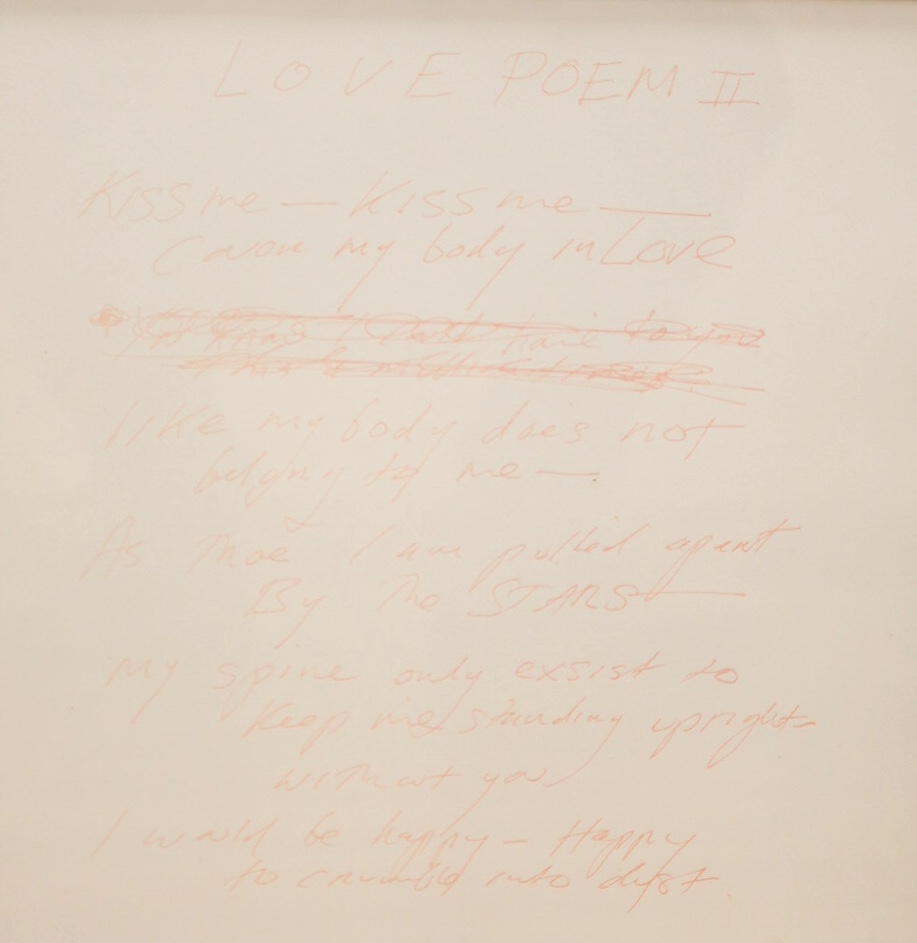 LOVE POEM II
Kiss me — Kiss me —
Cover my body in Love
like my body does not
belong to me —
As Thoe I am pulled apart
By The STARS —
My spine only exsist to
Keep me standing upright -
without you
I would be happy - Happy
to crumble into dust